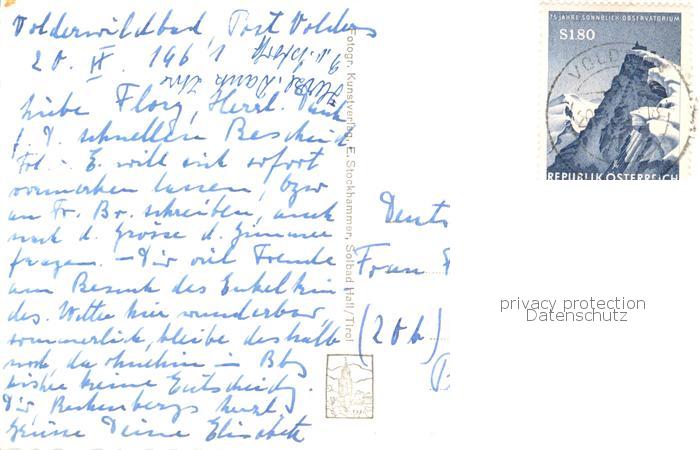 Volderwildbad, Post Volders
20. IX. 1961
Liebe Flory, Herzl. Dank
f. d. schnellen Bescheid
Frl. E. will sich sofort
vormerken lassen, bzw
an Fr. Br. schreiben, auch
nach d. Grösse d. Zimmer
fragen. – Dir viel Freude
am Besuch des Enkelkin-
des. Wetter hier wunderbar,
sommerlich, bleibe deshalb
noch, da ohnehin in Bbg
bisher keine Entscheidg.
Dir, herzl.
Grüsse Deine Elisabeth
Fotogr. Kunstverlag E. Stockhammer, Solbad Hall/Tirol
75 JAHRE SONNBLICK-OBSERVATORIUM
S1.80
REPUBLIK ÖSTERREICH
VOLDERS
Deuts
Frau
(20b)
privacy protection
Datenschutz